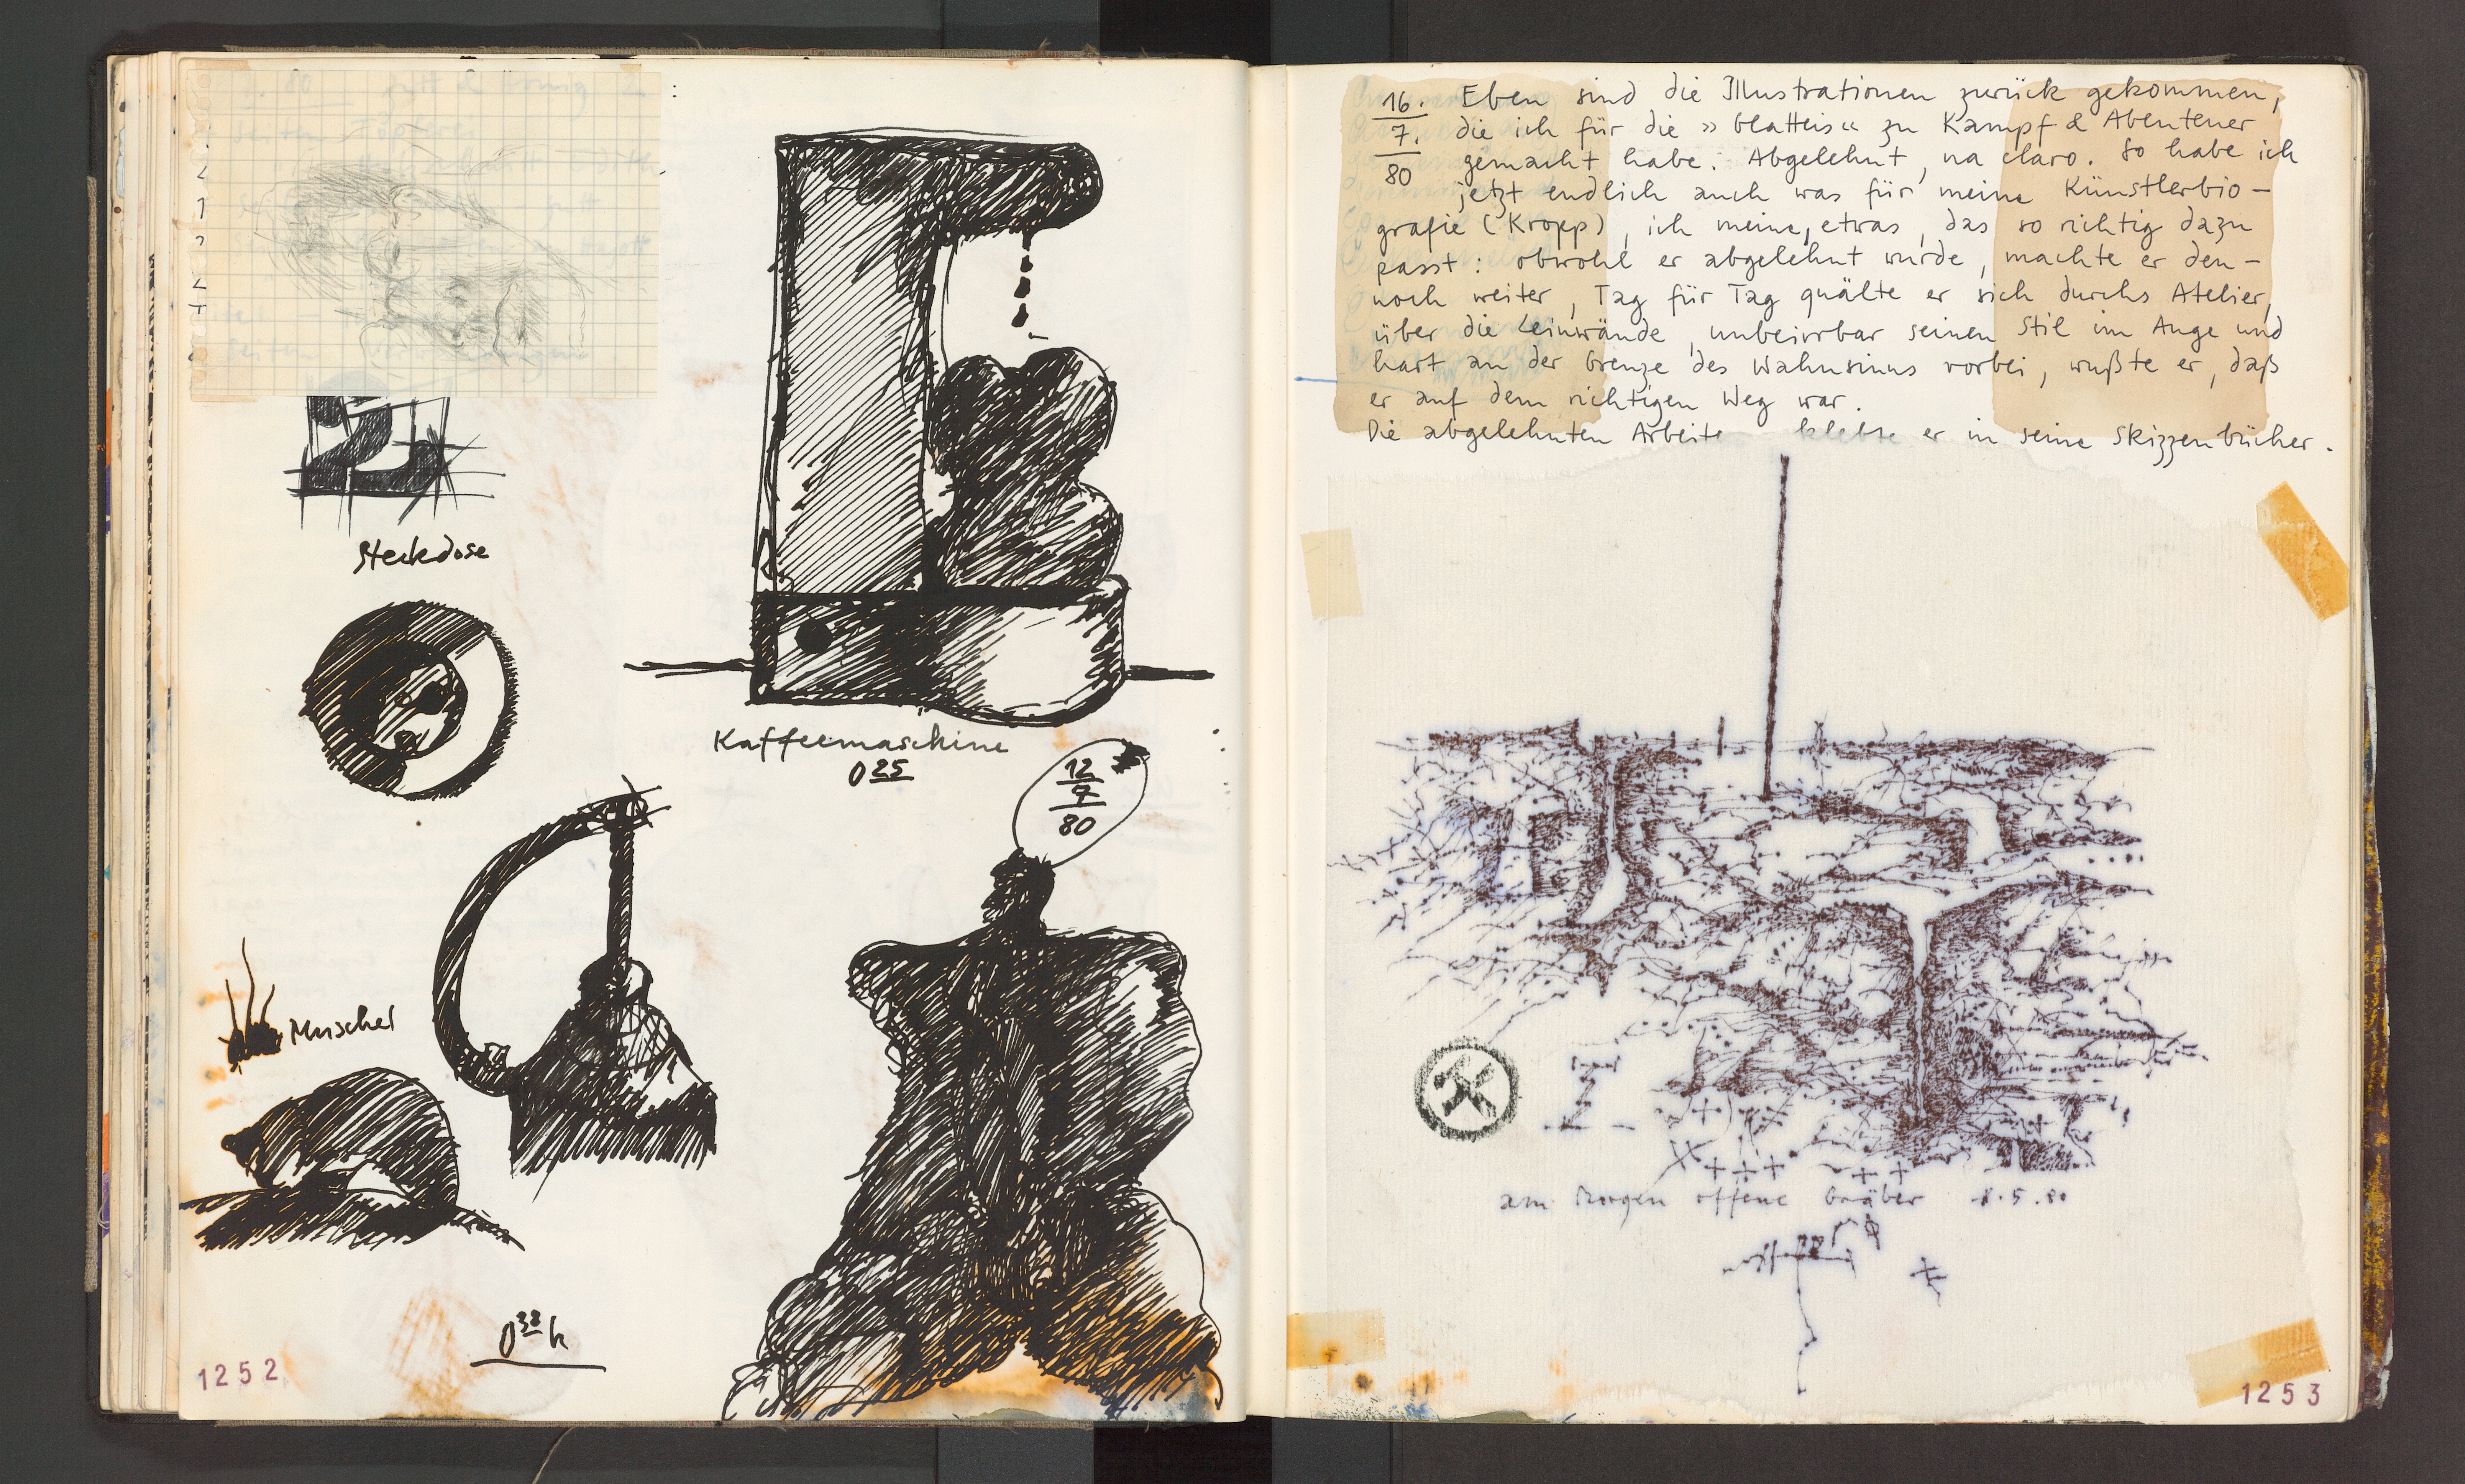 Steckdose
Kaffeemaschine
0 25
12
7
80
Muschel
0 38 h
1252
16.
7.
80
Eben sind die Illustrationen zurück gekommen,
die ich für die »blatteis« zu Kampf & Abenteuer
gemacht habe. Abgelehnt, na claro. So habe ich
jetzt endlich auch was für meine Künstlerbio-
grafie (Kropp), ich meine, etwas, das so richtig dazu
passt: obwohl er abgelehnt wurde, machte er den-
noch weiter, Tag für Tag quälte er sich durchs Atelier,
über die Leinwände, unbeirrbar seinen Stil im Auge und
hart an der Grenze des Wahnsinns vorbei, wußte er, daß
er auf dem richtigen Weg war.
Die abgelehnten Arbeiten klebte er in seine Skizzenbücher.
am Morgen offene Gräber 8.5.80
1253